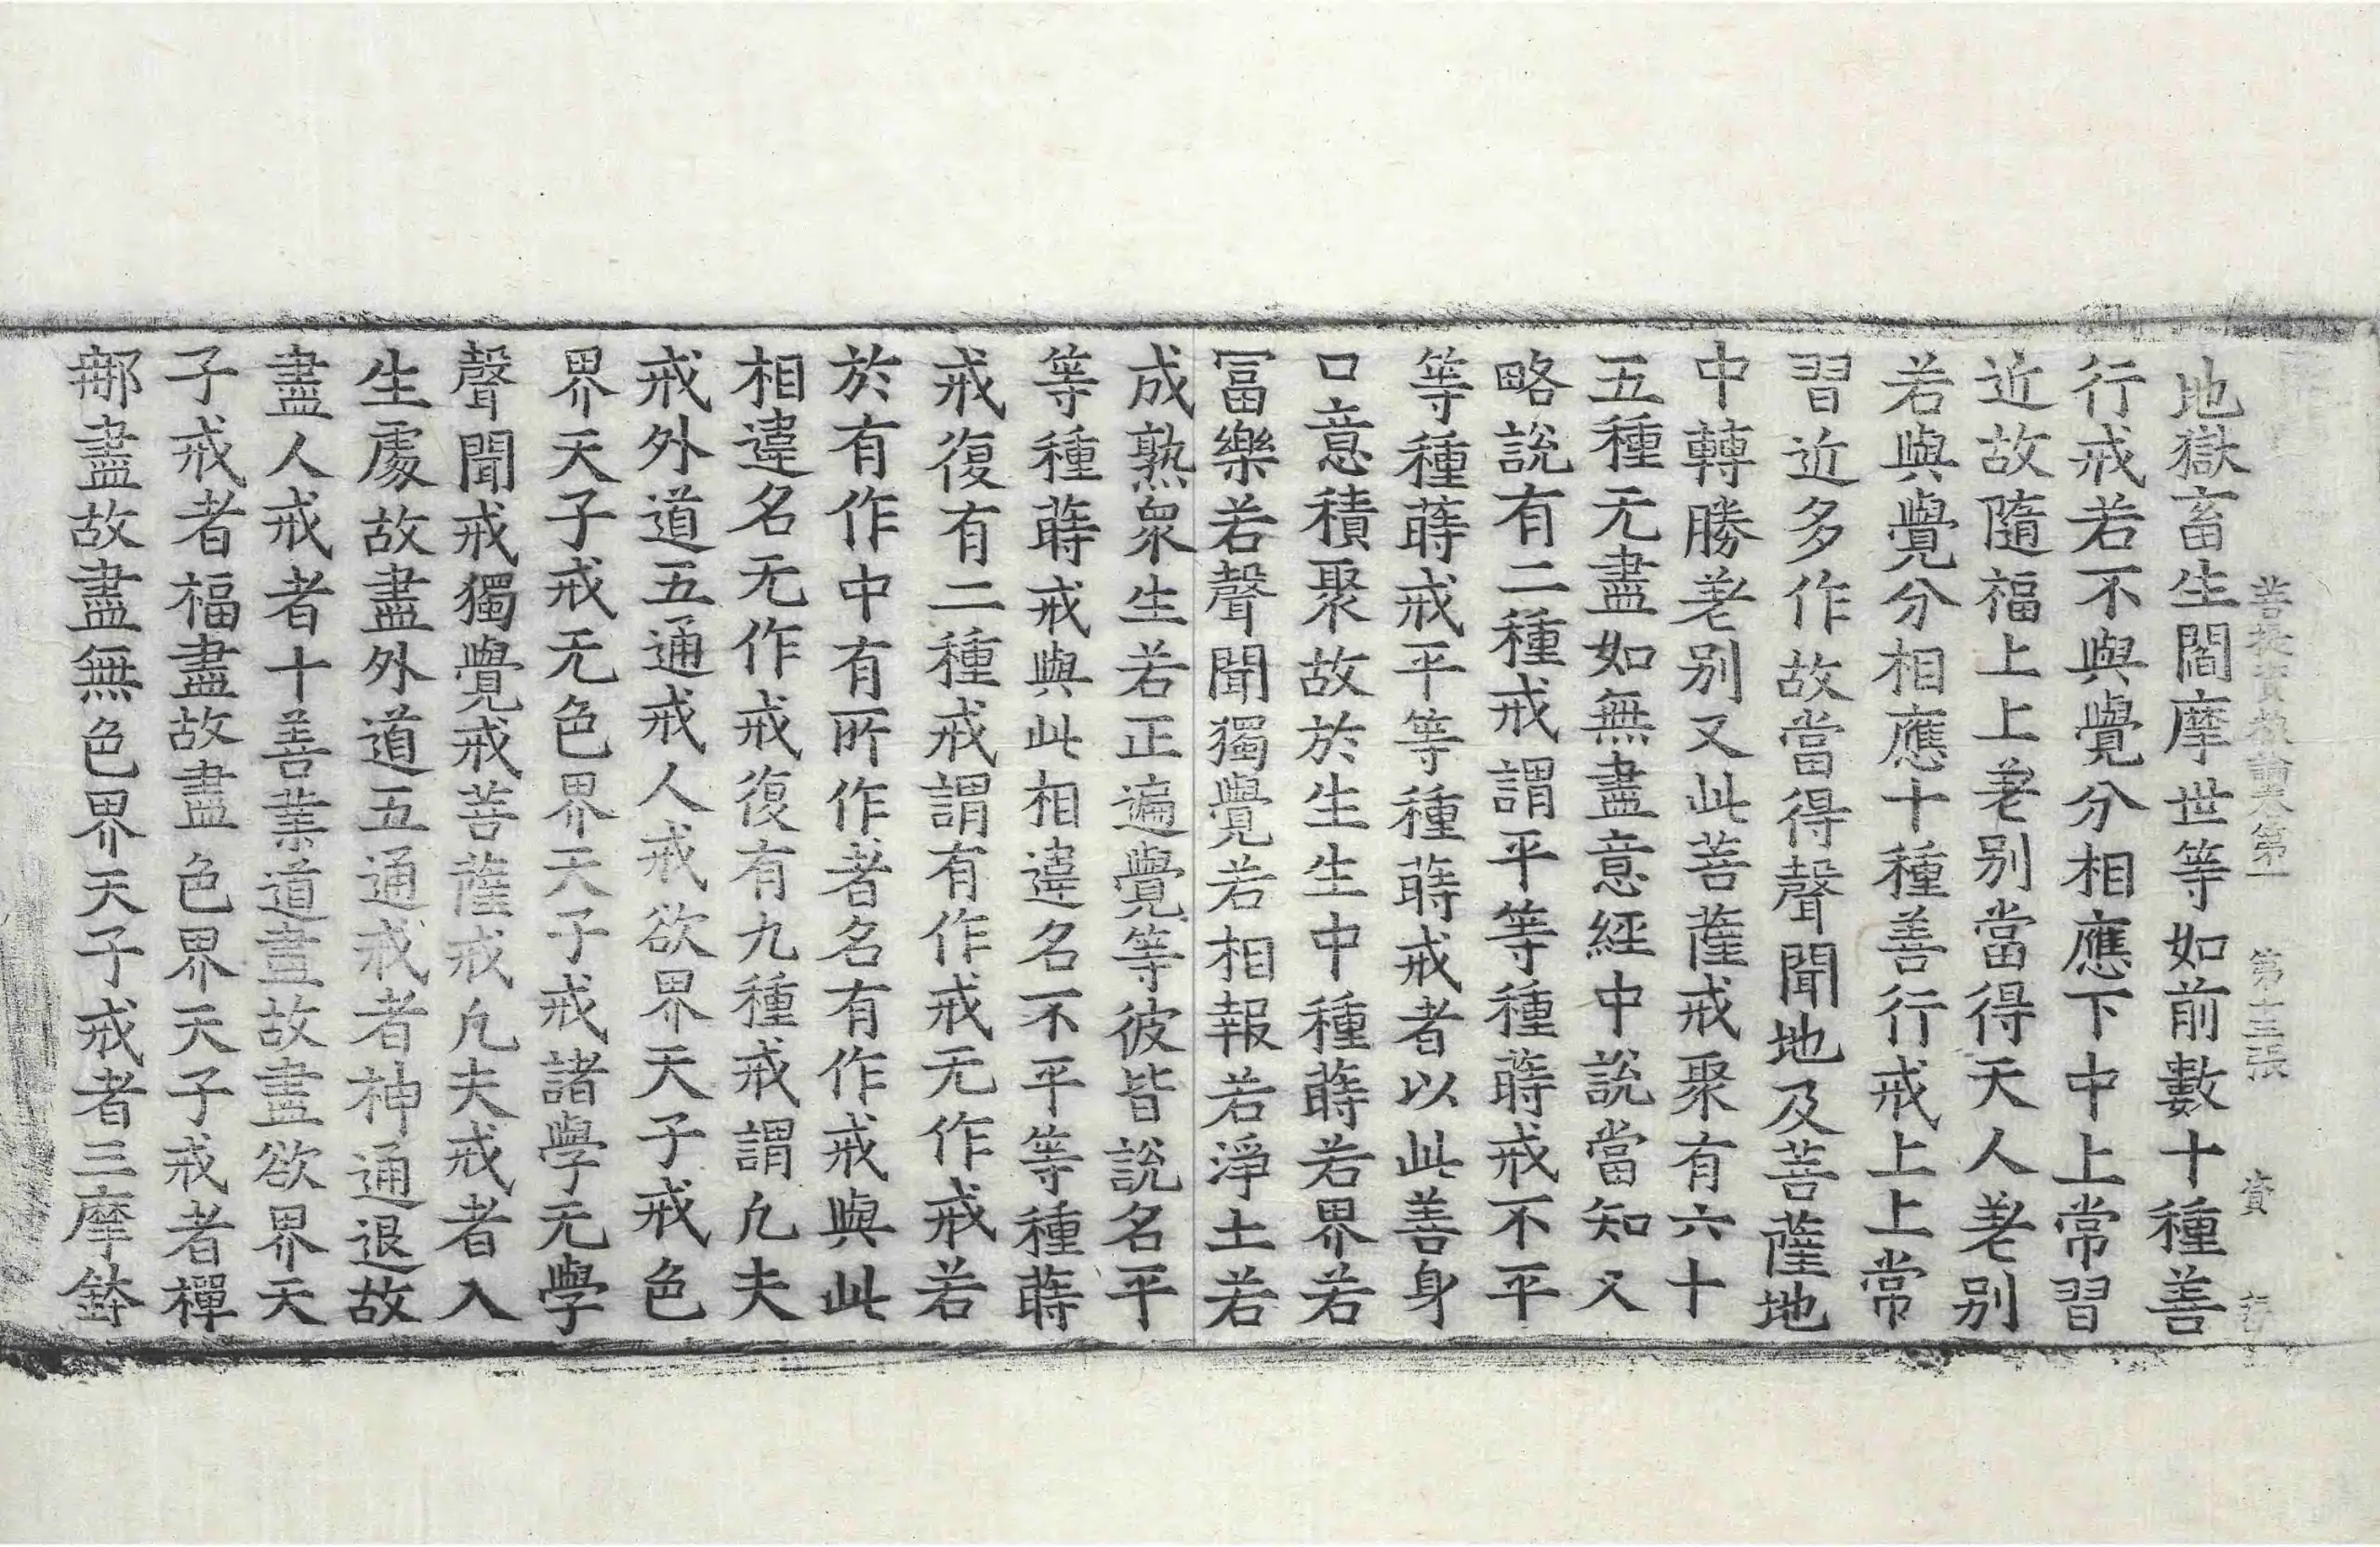 菩提資粮論卷第一 第十三張 資
地獄畜生閻摩世等如前數十種善
行戒若不與覺分相應下中上常習
近故隨福上上差别當得天人差别
若與覺分相應十種善行戒上上常
習近多作故當得聲聞地及菩薩地
中轉勝差别又此菩薩戒聚有六十
五種无盡如無盡意經中說當知又
略說有二種戒謂平等種蒔戒不平
等種蒔戒平等種蒔戒者以此善身
口意積聚故於生生中種蒔若界若
冨樂若聲聞獨覺若相報若淨土若
成熟衆生若正遍覺等彼皆說名平
等種蒔戒與此相違名不平等種蒔
戒復有二種戒謂有作戒无作戒若
於有作中有所作者名有作戒與此
相違名无作戒復有九種戒謂凢夫
戒外道五通戒人戒欲界天子戒色
界天子戒无色界天子戒諸學无學
聲聞戒獨覺戒菩薩戒凢夫戒者入
生處故盡外道五通戒者神通退故
盡人戒者十善業道盡故盡欲界天
子戒者福盡故盡色界天子戒者禪
那盡故盡無色界天子戒者三摩鉢